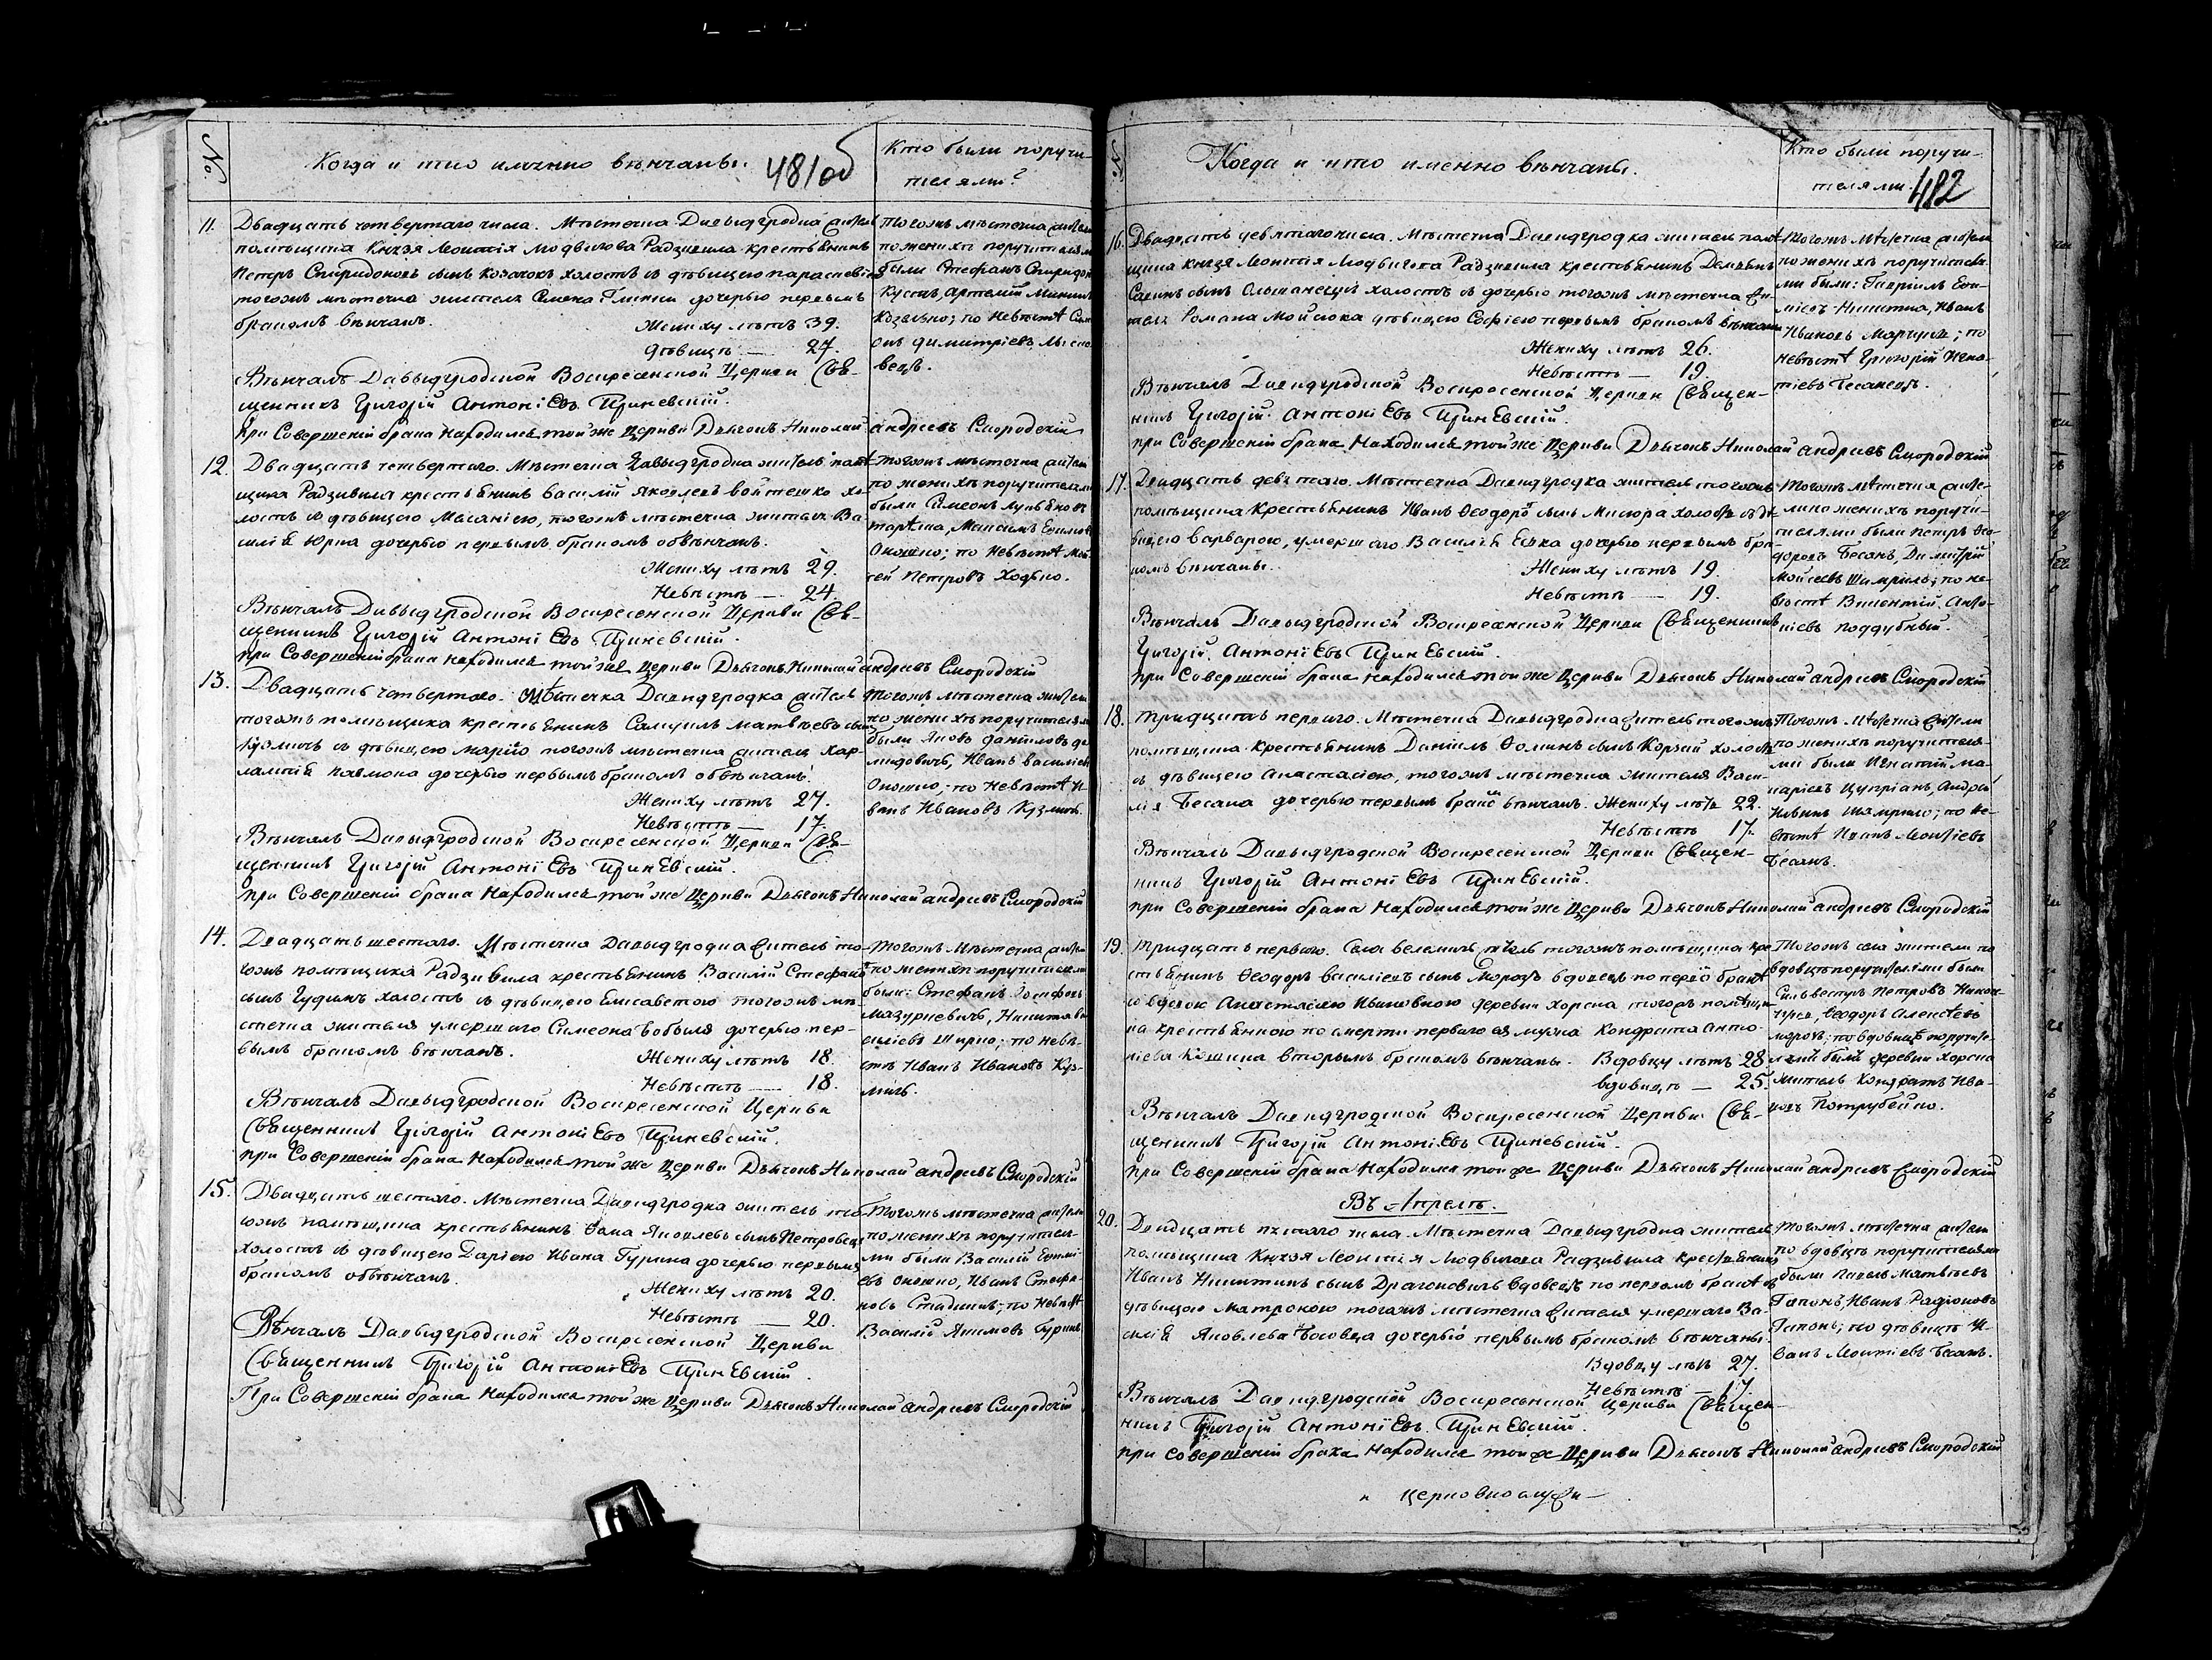 №.
Когда и кто именно вѣнчаны.
481об
Кто были поручи-
телями?
11.
Двадцать четвертаго числа. Мѣстечка Давыдгродка житель
помѣщика Князя Леонтія Людвигова Радзивила крестьянинъ
Петръ Спиридоновъ сынъ Козачокъ холостъ съ дѣвицею Параскевіею
тогожъ мѣстечка жителя Семена Глинки дочерью первымъ
бракомъ вѣнчанъ.
Жениху лѣтъ 39.
Дѣвицѣ — 27.
Вѣнчалъ Давыдгродской Воскресенской Церкви Свя-
щенникъ Григорій Антоніевъ
При Совершеніи брака Находился той же Церкви Дьячокъ Николай Андреевъ Смородскій
Тогожъ мѣстечка жители
по женихѣ поручителями
были Стефанъ Спиридон
по Невѣстѣ
онъ Димитріевъ
вецъ.
12.
Двадцать четвертаго. Мѣстечка Давыдгродка житель помѣ-
щика Радзивила крестьянинъ Василій Яковлевъ Войтешко хо-
лостъ съ дѣвицею Меланіею, тогожъ мѣстечка жителя Ва-
силія Юрка дочерью первымъ бракомъ обвѣнчанъ.
Жениху лѣтъ 29.
Невѣстѣ — 24.
Вѣнчалъ Давыдгродской Воскресенской Церкви Свя-
щенникъ Григорій Антоніевъ
При Совершеніи брака Находился той же Церкви Дьячокъ Николай Андреевъ Смородскій
Тогожъ мѣстечка жители
по женихѣ поручителями
были Симеонъ Лукьяновъ
Максимъ
по Невѣстѣ
сей Петровъ Ходько.
13.
Двадцать четвертаго. Мѣстечка Давидгродка житель
тогожъ помѣщика крестьянинъ Самуилъ Матвѣевъ сынъ
Кузмичъ съ дѣвицею Маріею тогожъ мѣстечка жителя Хар-
лампія дочерью первымъ бракомъ обвѣнчанъ.
Жениху лѣтъ 27.
Невѣстѣ — 17.
Вѣнчалъ Давыдгродской Воскресенской Церкви Свя-
щенникъ Григорій Антоніевъ
При Совершеніи брака Находился той же Церкви Дьячокъ Николай Андреевъ Смородскій
Тогожъ мѣстечка жители
по женихѣ поручителями
были Яковъ Даниловъ Де
мидовичъ, Иванъ Василіевъ
по Невѣстѣ И-
ванъ Ивановъ Кузмичъ.
14.
Двадцать шестаго. Мѣстечка Давыдгродка житель то-
гожъ помѣщика Радзивила крестьянинъ Василій Стефановъ
сынъ Гудимъ холостъ съ дѣвицею Елисаветою тогожъ мѣ-
стечка жителя умершаго Симеона дочерью пер-
вымъ бракомъ вѣнчанъ.
Жениху лѣтъ 18.
Невѣстѣ — 18.
Вѣнчалъ Давыдгродской Воскресенской Церкви
Священникъ Григорій Антоніевъ
При Совершеніи брака Находился той же Церкви Дьячокъ Николай Андреевъ Смородскій
Тогожъ Мѣстечка жители
по женихѣ поручителями
были: Стефанъ Іосифовъ
Мазуркевичъ, Никита Ва
силіевъ по невѣ-
стѣ Иванъ Ивановъ Куз-
мичъ.
15.
Двадцать шестаго. Мѣстечка Давидгродка житель то-
гожъ помѣщика крестьянинъ Фома Яковлевъ сынъ Петровецъ
холостъ съ дѣвицею Даріею Ивана Гурина дочерью первымъ
бракомъ обвѣнчанъ.
Жениху лѣтъ 20.
Невѣстѣ — 20.
Вѣнчалъ Давыдгродской Воскресенской Церкви
Священникъ Григорій Антоніевъ
При Совершеніи брака Находился той же Церкви Дьячокъ Николай Андреевъ Смородскій
Тогожъ мѣстечка жители
по женихѣ поручителя-
ми были Василій
Иванъ Стефа-
новъ по Невѣстѣ
Василій Якимовъ Гуринъ
№
Когда и кто именно вѣнчаны.
Кто были поручи-
телями.
482
16.
Двадцать девятаго числа. Мѣстечка Давидгродка житель помѣ-
щика князя Леонтія Людвигова Радзивила крестьянинъ Демьянъ
сынъ Ольшанецъ холостъ съ дочерью тогожъ мѣстечка жи-
теля Романа Мойсюка дѣвицею Софіею первымъ бракомъ вѣнчаны
Жениху лѣтъ 26.
Невѣстѣ — 19.
Вѣнчалъ Давидгродской Воскресенской Церкви Священ-
никъ Григорій Антоніевъ
При Совершеніи брака Находился той же Церкви Дьячокъ Николай Андреевъ Смородскій
Тогожъ мѣстечка жители
по женихѣ поручителя-
ми были: Гавріилъ
Никита, Иванъ
Ивановъ по
невѣстѣ Григорій Игна-
тіевъ Бесанецъ.
17.
Двадцать девятаго. Мѣстечка Давидгродка житель тогожъ
помѣщика Крестьянинъ Иванъ Феодоровъ сынъ Мисюра холостъ съ дѣ-
вицею Варварою, умершаго Василія дочерью первымъ бра-
комъ вѣнчаны.
Жениху лѣтъ 19.
Невѣстѣ — 19.
Вѣнчалъ Давыдгродской Воскресенской Церкви Священникъ
Григорій Антоніевъ
При Совершеніи брака находился той же Церкви Дьячокъ Николай Андреевъ Смородскій
Тогожъ мѣстечка жите-
ли по женихѣ поручи-
телями были Петръ Фео-
доровъ Бесанъ, Димитрій
Мойсеевъ по не-
вѣстѣ Викентій Анто-
ніевъ Поддубный.
18.
Тридцать перваго. Мѣстечка Давыдгродка житель тогожъ
помѣщика крестьянинъ Даніилъ Фоминъ сынъ Корзай холостъ
съ дѣвицею Анастасіею, тогожъ мѣстечка жителя Васи-
лія Бесана дочерью первымъ бракомъ вѣнчанъ. Жениху лѣтъ 22.
Невѣстѣ 17.
Вѣнчалъ Давыдгродской Воскресенской Церкви Священ-
никъ Григорій Антоніевъ
При Совершеніи брака Находился той же Церкви Дьячокъ Николай Андреевъ Смородскій
Тогожъ мѣстечка жители
по женихѣ поручителя-
ми были Игнатій Ма-
каріевъ Андрей
по не-
вѣстѣ Иванъ Леонтіевъ
Бесанъ.
19.
Тридцать перваго. Села Велемичъ житель тогожъ помѣщика кре
стьянинъ Феодоръ Василіевъ сынъ Морозъ вдовецъ по первом бракѣ
со вдовою Анастасіею Ивановною деревни Хорска тогожъ помѣщи-
ка крестьянкою по смерти перваго ея мужа Кондрата Анто-
ніева вторымъ бракомъ вѣнчаны. Вдовцу лѣтъ 28.
Вдовицѣ — 25.
Вѣнчалъ Давидгродской Воскресенской Церкви Свя-
щенникъ Григорій Антоніевъ
При Совершеніи брака Находился той же Церкви Дьячокъ Николай Андреевъ Смородскій
Тогожъ села жители по
вдовцѣ поручителями были
Сильвестръ Петровъ
Феодоръ Алексѣевъ
Морозъ; по вдовицѣ поручите-
лемъ былъ деревни Хорска
житель Кондратъ Ива-
новъ Потрубейко.
Въ Апрелѣ.
20.
Двадцать пятаго числа Мѣстечка Давыдгродка житель
помѣщика Князя Леонтія Людвигова Радзивила крестьянинъ
Иванъ Никитинъ сынъ Драгеновичъ вдовецъ по первомъ бракѣ съ
дѣвицею Матроною тогожъ мѣстечка жителя умершаго Ва-
силія Яковлева дочерью первымъ бракомъ вѣнчаны.
Вдовцу лѣтъ 27.
Невѣстѣ — 17.
Вѣнчалъ Давидгродской Воскресенской Церкви Священ-
никъ Григорій Антоніевъ
При Совершеніи брака Находился той же Церкви Дьячокъ Николай Андреевъ Смородскій
Тогожъ мѣстечка жители
по вдовцѣ поручителями
были Павелъ Матвѣевъ
Гапонъ, Иванъ Радіоновъ
Гапонъ; по дѣвицѣ И-
ванъ Леонтіевъ Бесанъ.